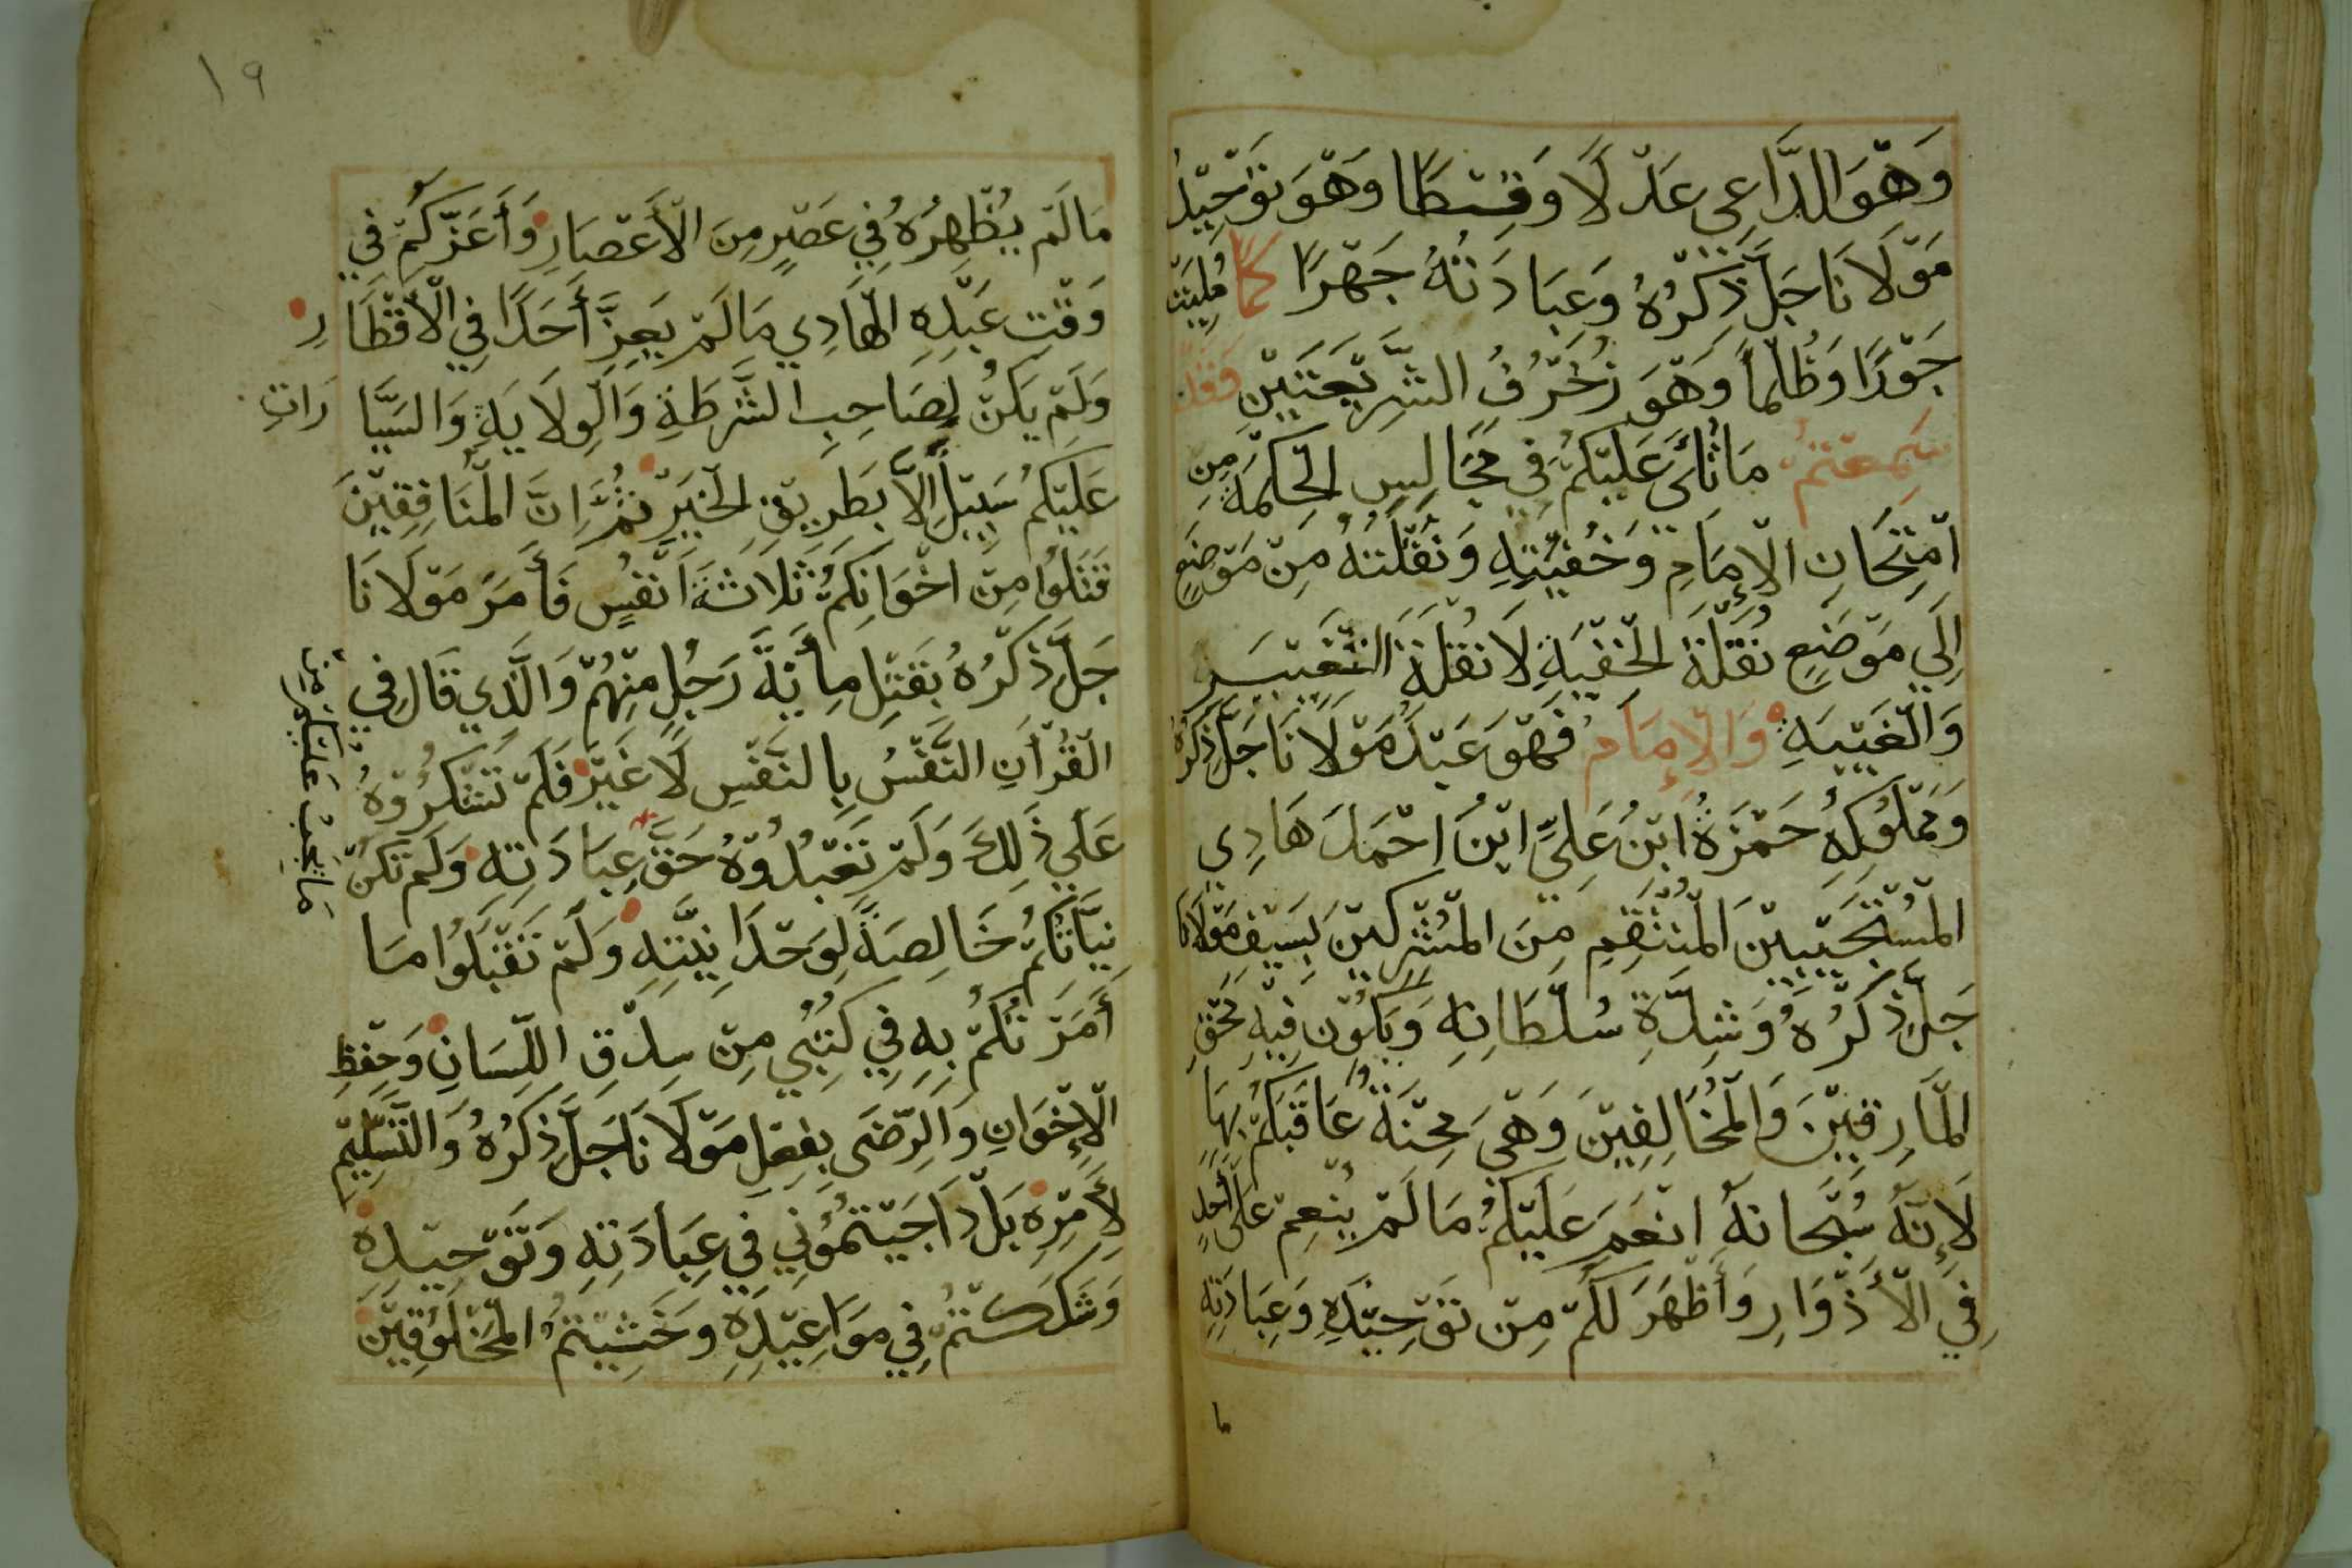 وَهْوَ الدَّاعِي عَدْلًا وَقِسْطًا وَهْوَ تَوْحِيْدُ
مَوْلَانَا جَلَّ ذِكْرُهُ وَعِبَادَتُهُ جَهْرًا كَمَا مُلِيَتْ
جَوْرًا وَظُلْمًا وَهْوَ زُخْرُفُ الشَّرِيْعَتَيْنِ فَقَدْ
سَمِعْتُمْ مَا تُلِيَ عَلَيْكُمْ فِي مَجَالِسِ الْحِكْمَةِ مِنِ
امْتِحَانِ الْإِمَامِ وَخُفْيَتِهِ وَنُقْلَتِهُ مِنْ مَوْضِعٍ
إِلَي مَوْضِعٍ نُقْلَةُ الْخُفْيَةِ لَا نُقْلَةُ التَّغْيِيْرِ
وَالْغَيْبَةِ وَالْإِمَامُ فَهْوَ عَبْدُ مَوْلَانَا جَلَّ ذِكْرُهُ
وَمَمْلُوْكُهِ حَمْزَةُ ابْنُ عَلِيِّ ابْنُ احْمَدَ هَادِي
الْمُسْتَجِيْبِيْنَ الْمُنْتَقِمِ مِنَ الْمُشْرِكِيْنَ بِسَيْفِ مَوْلَانَا
جَلَّ ذِكْرُهُ وَشِدَّةِ سُلْطَانِهِ وَيَكُوْنِ فِيْهِ مَحْقِ
الْمَارِقِيْنَ وَالْمُخَالِفِيْنَ وَهْيَ مِحْنَةٌ عَاقَبَكُمْ بِهَا
لَإِنَّهُ سُبْحَانَهُ انْعَمَ عَلَيْكُمْ مَا لَمْ يُنْعِمْ عَلَى أَحَدٍ
فِي الْأَدْوَارِ وَأَظْهَرَ لَكُمْ مِنْ تَوْحِيْدِهِ وَعِبَادَتِهِ
ما
١٩
مَا لَمْ يُظْهِرُهُ فِي عَصْرٍ مِنَ الْأَعْصَارِ وَأَعَزَّكُمْ فِي
وَقْتِ عَبْدِهِ الْهَادِي مَا لَمْ يَعِزَّ أَحَدًا فِي الْأَقْطَارِ
وَلَمْ يَكُنْ لِصَاحِبِ الشَّرْطَةِ وَالْوِلَايَةِ وَالسَّيَّارَاتِ
عَلَيْكُمْ سَبِيْلٍ إِلَّا بِطَرِيْقِ الْخَيْرِ ثُمَّ اِنَّ الْمُنَافِقِيْنَ
قَتَلُوْا مِنْ اخْوَانِكُمْ ثَلَاثَةَ اَنْفُسٍ فَأَمَرَ مَوْلَانَا
جَلَّ ذِكْرُهُ بِقَتْلِ مِأَيَةَ رَجُلٍ مِنْهُمْ وَالَّذِي قَالَ فِي
الْقُرْآنِ النَّفْسُ بِالنَّفْسِ لَا غَيْرَ فَلَمْ تَشْكُرُوْهُ
عَلَي ذَلِكَ وَلَمْ تَعْبُدُوْهُ حَقَّ عِبَادَتِهِ وَلَمْ تَكُنْ
مَا يَجِبُ عَلَيْكُمْ مِنْ
نِيَّاتُكُمْ خَالِصَةً لِوَحْدَانِيَّتِهِ وَلَمْ تَقْبَلُوْا مَا
أَمَرْتُكُمْ بِهِ فِي كُتُبِي مِنْ سِدْقِ اللِّسَانِ وَحِفْظِ
الْإِخْوَانِ وَالرِّضَى بِفِعْلِ مَوْلَانَا جَلَّ ذِكْرُهُ وَالتَّسْلِيْمِ
لِأَمْرِهِ بَلْ اَجَبْتُمُوْنِي فِي عِبَادَتِهِ وَتَوْحِيْدِهِ
وَشَكَكْتُمْ فِي مَوَاعِيْدِهِ وَخَشِيْتُمُ الْمَخْلُوْقِيْنَ